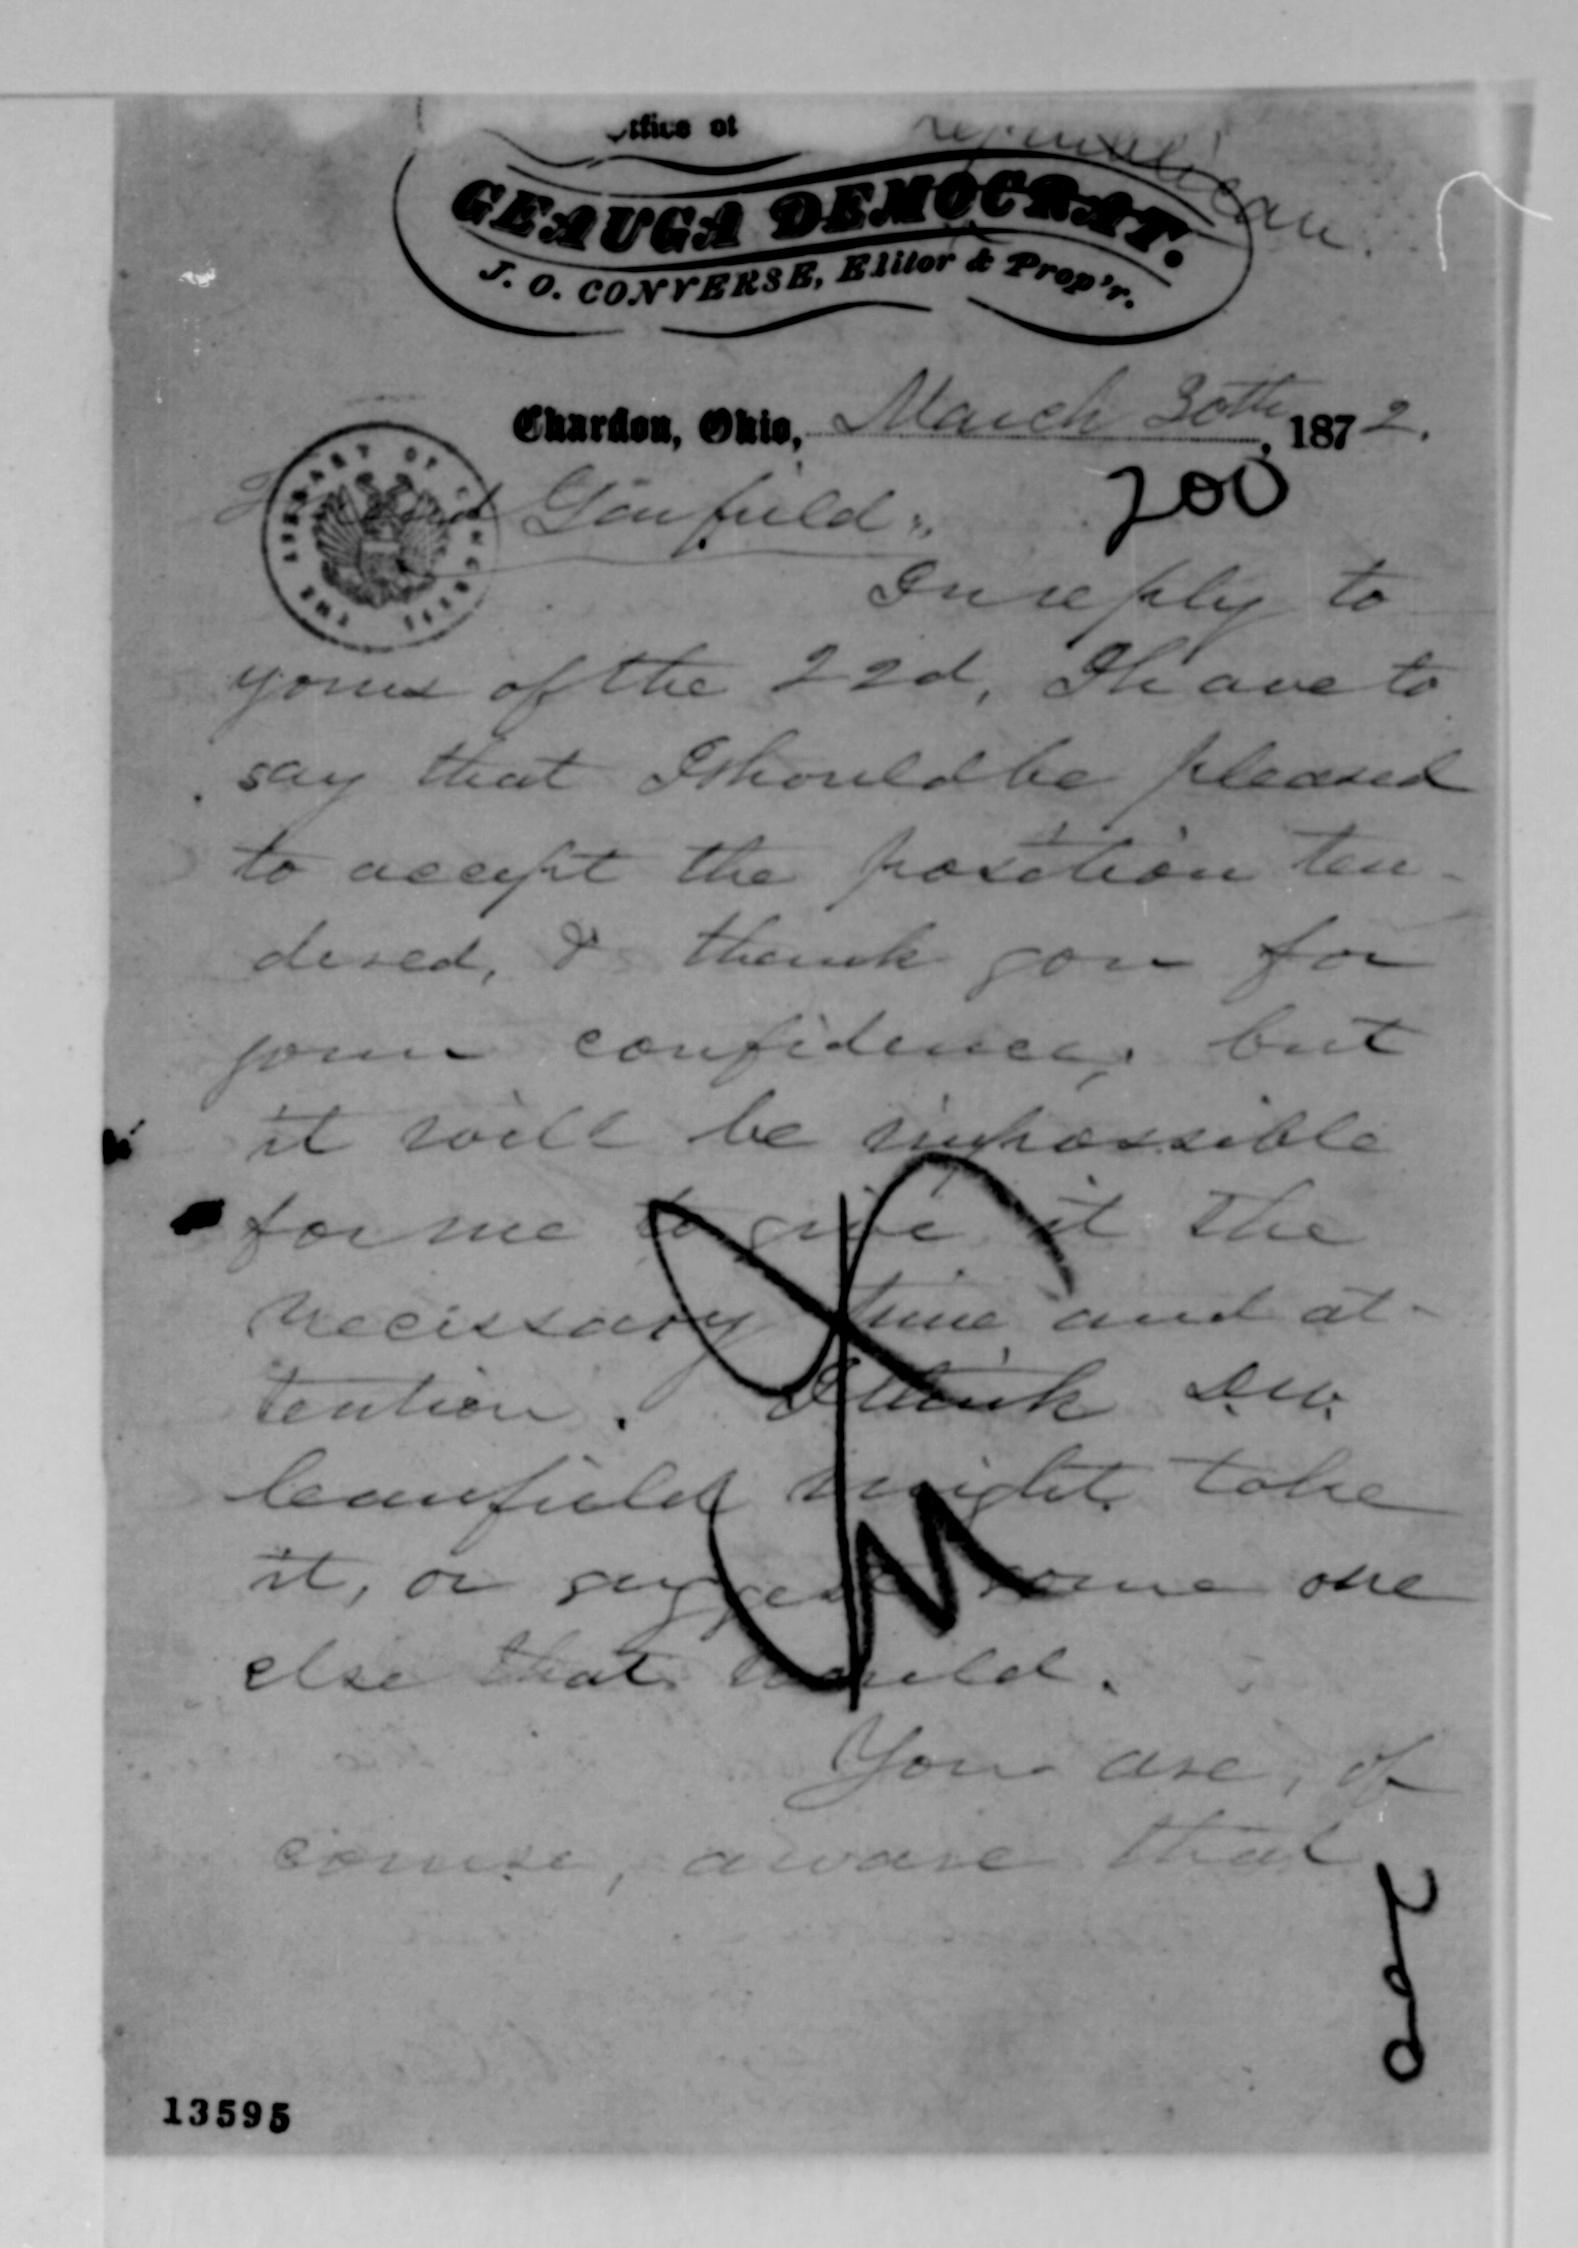 Office of
Republican.
GEAUGA DEMOCRAT.
J. O. CONVERSE, Editor & Prop'r.
Chardon, Ohio, March 30th, 1872.
Friend Garfield:
200
THE LIBRARY OF CONGRESS
In reply to
yours of the 22d, I have to
say that I should be pleased
to accept the position ten-
dered, & thank you for
your confidence, but
it will be impossible
for me to give it the
necessary time and at-
tention. I think D.W.
Canfield might take
it, or suggest some one
else that would.
You are, of
course, aware that
13595